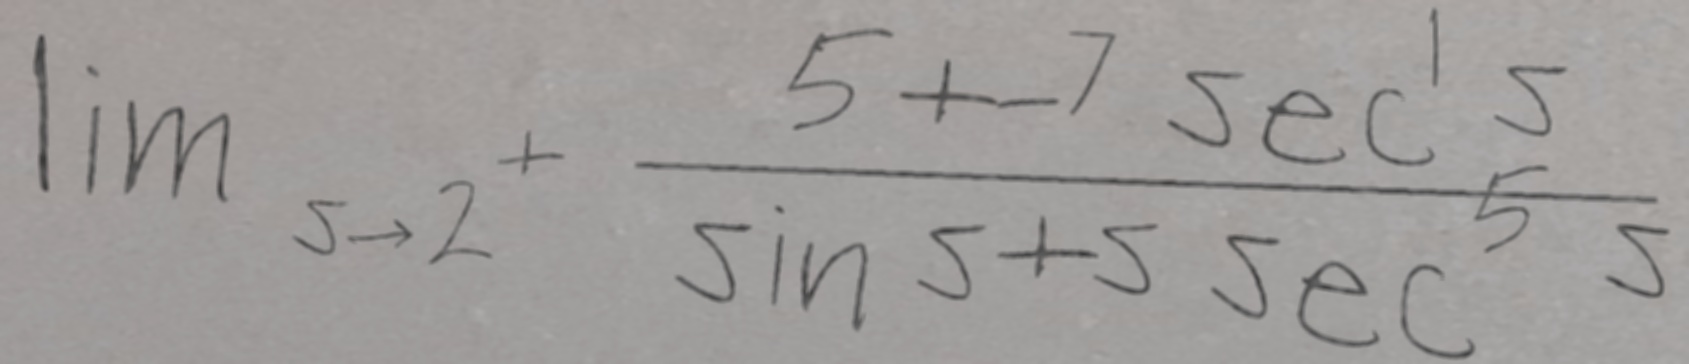 \lim_{s \to 2^+} \frac{5 + -7 \sec^1 s}{\sin s + s \sec^5 s}